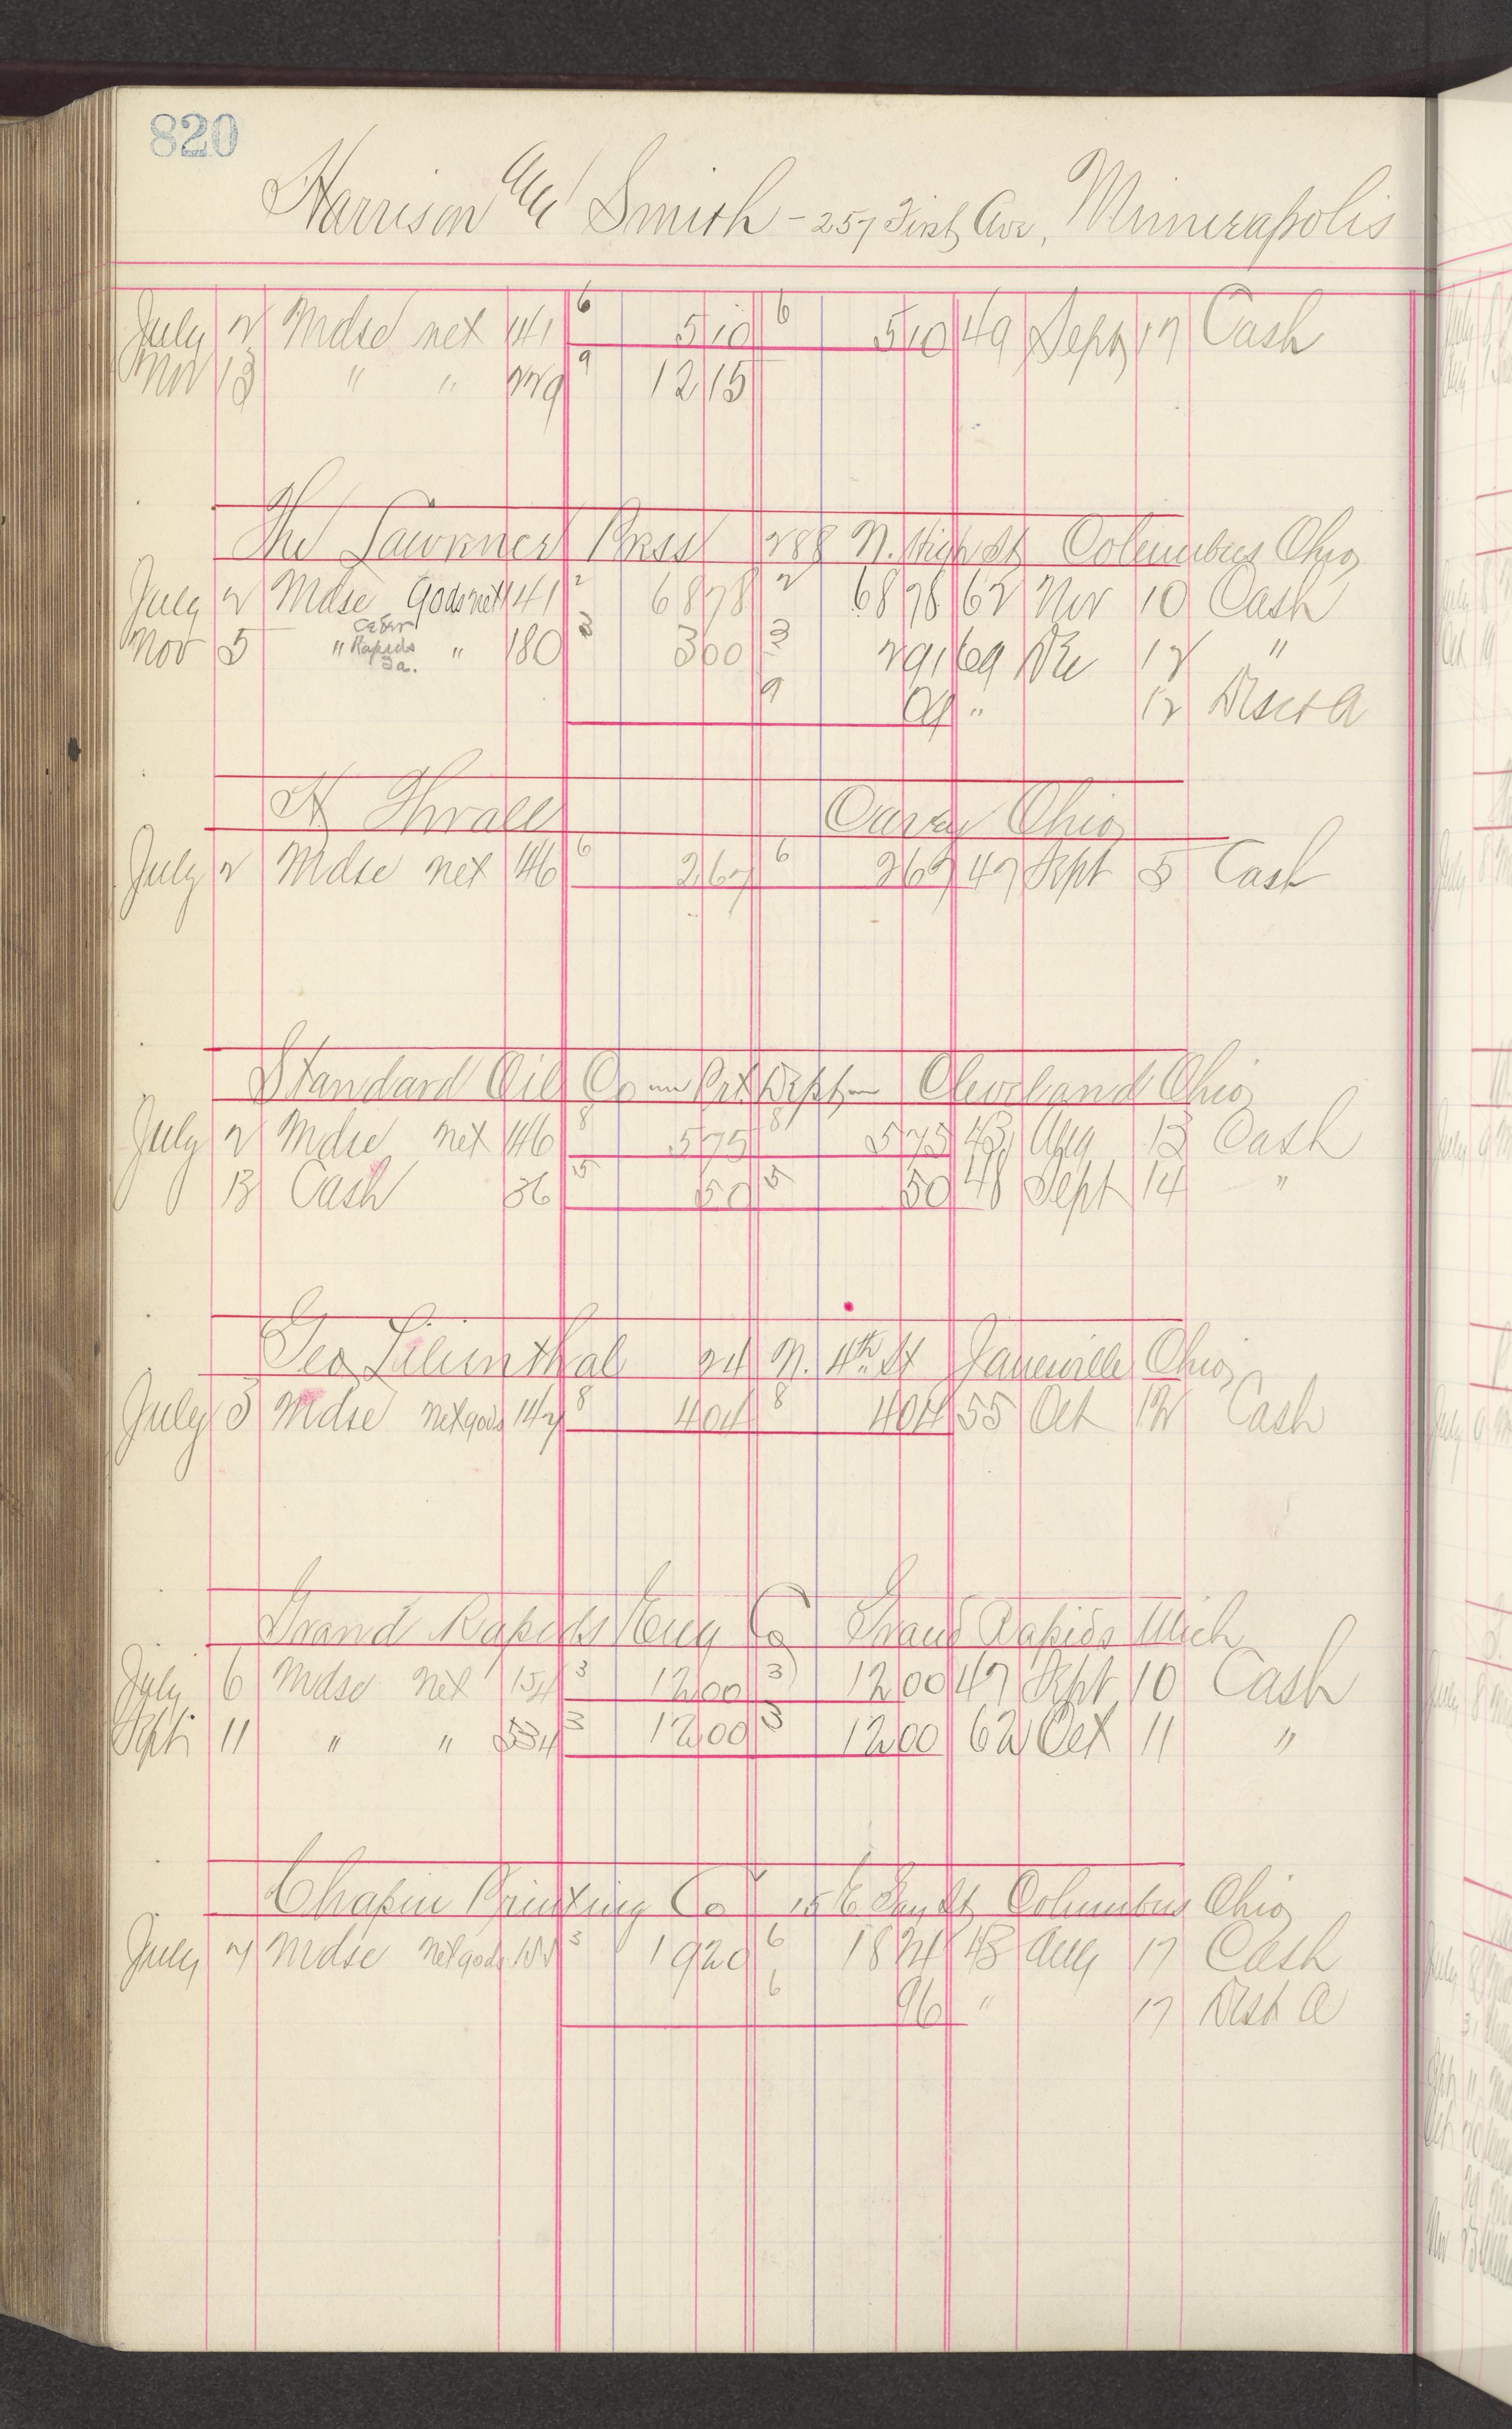 820
Harrison & Smith - 257 First Ave, Minneapolis
July 2 Mdse net 141 6 5 10 6 5 10 49 Sept 17 Cash
Nov 13 " " 229 9 12 15
The Lawrence Press 288 N. High St Columbus Ohio
July 2 Mdse 90ds net 141 2 68 78 2 68 78 62 Nov 10 Cash
Nov 5 " Cedar Rapids Ia. " 180 3 3 00 3 2 91 69 Dec 12 "
9 09 " 12 Disct a
Thrall Ohio
July 2 Mdse net 146 6 2 67 6 2 67 47 Sept 5 Cash
Standard Oil Co Cleveland Ohio
July 2 Mdse net 146 8 5 75 8 5 75 43 Aug 13 Cash
13 Cash 36 5 50 5 50 48 Sept 14 "
Geo Lilienthal 24 N. 4th St Ohio
July 3 Mdse net 147 8 4 04 8 4 04 55 Oct 12 Cash
Grand Rapids Eng Co Grand Rapids Mich
July 6 Mdse net 154 3 12 00 3 12 00 47 Sept 10 Cash
Sept 11 " " 3 12 00 3 12 00 62 Oct 11 "
Chapin Printing Co Columbus Ohio
July Mdse net 3 19 20 6 18 24 43 Aug 17 Cash
6 96 " 17 Disct a